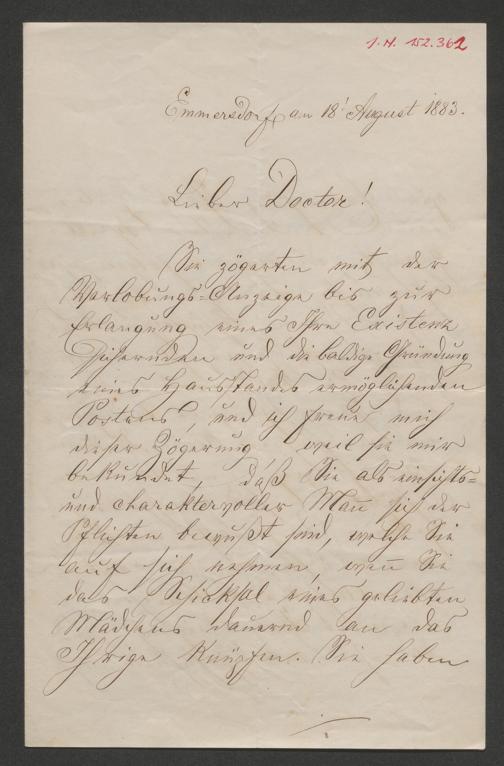 J.N. 152.362
Emmersdorf, am 18t August 1883.
Lieber Doctor!
Sie zögerten mit der
Verlobungs=Anzeige bis zur
Erlangung eines Ihre Existenz
sichernden und die baldige Gründung
eines Hausstandes ermöglichenden
Postens, und ich freue mich
dieser Zögerung, weil sie mir
bekundet, daß Sie als einsichts=
und charaktervoller Mañ sich der
Pflichten bewußt sind, welche Sie
auf sich nehmen, weñ Sie
das Schicksal eines geliebten
Mädchens dauernd an das
Ihrige knüpfen. Sie haben